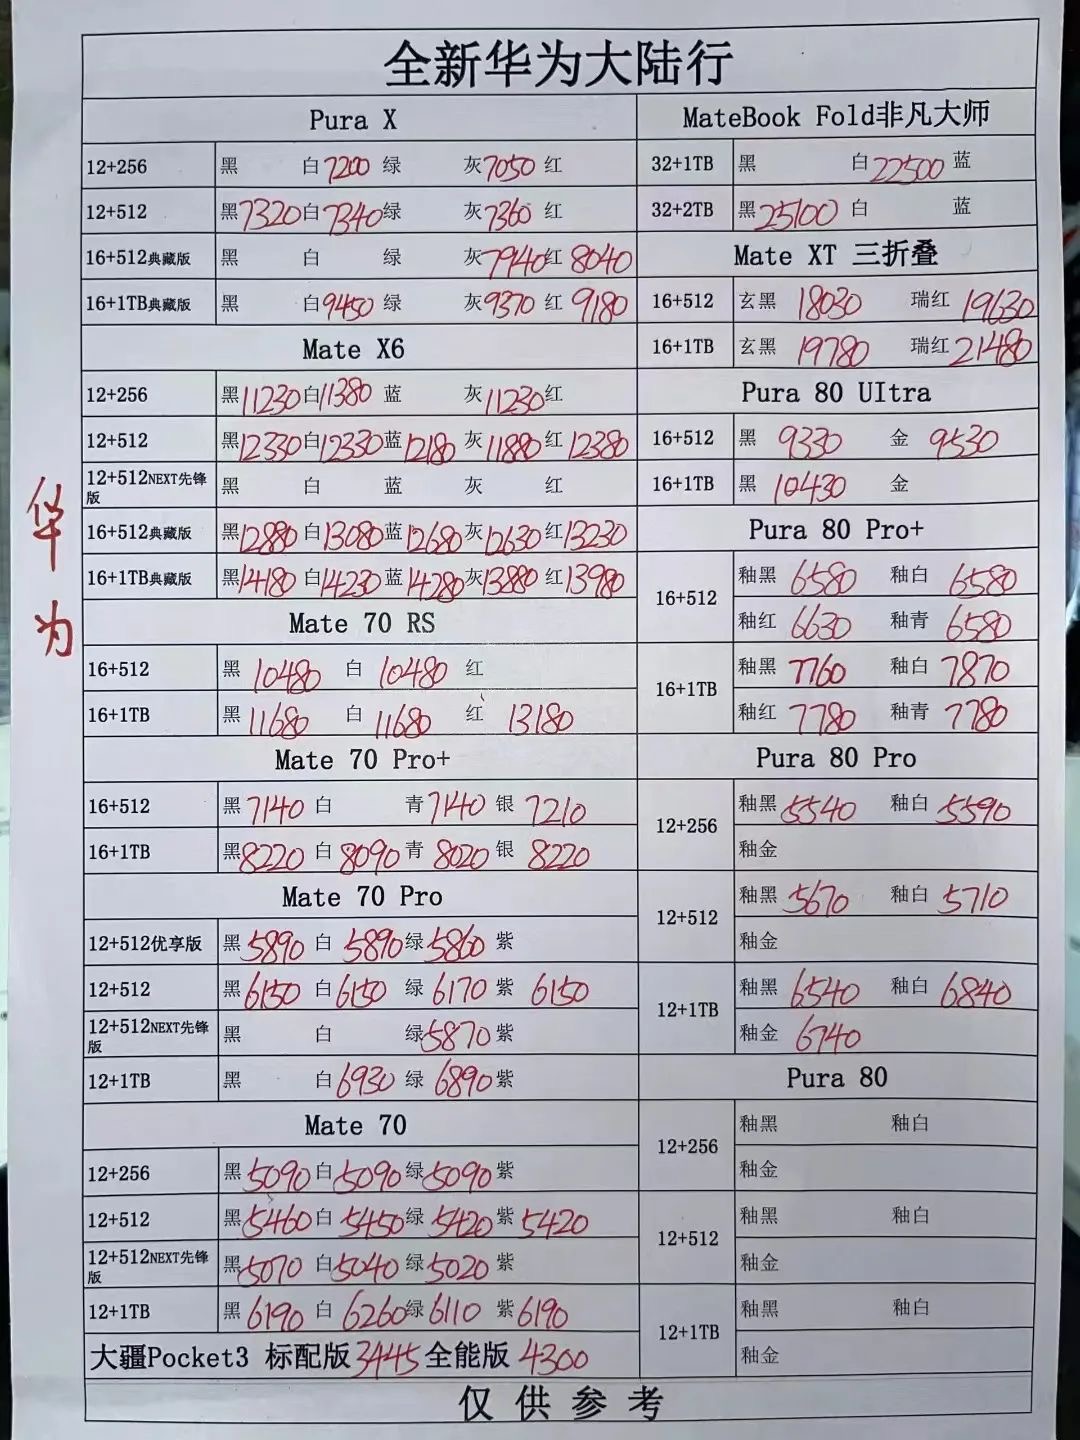 全新华为大陆行
华为
Pura X
12+256 黑 白7200 绿 灰7050 红
12+512 黑7320 白7340 绿 灰7360 红
16+512典藏版 黑 白 绿 灰7940 红8040
16+1TB典藏版 黑 白9450 绿 灰9370 红9180
Mate X6
12+256 黑11230 白11380 蓝 灰11230 红
12+512 黑12330 白12330 蓝12180 灰11880 红12380
12+512NEXT先锋版 黑 白 蓝 灰 红
16+512典藏版 黑12880 白13080 蓝12680 灰12630 红13230
16+1TB典藏版 黑14180 白14230 蓝14280 灰13880 红13980
Mate 70 RS
16+512 黑10480 白10480 红
16+1TB 黑11680 白11680 红13180
Mate 70 Pro+
16+512 黑7140 白 青7140 银7210
16+1TB 黑8220 白8090 青8020 银8220
Mate 70 Pro
12+512优享版 黑5890 白5890 绿5860 紫
12+512 黑6150 白6150 绿6170 紫6150
12+512NEXT先锋版 黑 白 绿5870 紫
12+1TB 黑 白6930 绿6890 紫
Mate 70
12+256 黑5090 白5090 绿5090 紫
12+512 黑5460 白5450 绿5420 紫5420
12+512NEXT先锋版 黑5070 白5040 绿5020 紫
12+1TB 黑6190 白6260 绿6110 紫6190
大疆Pocket3 标配版3445 全能版4300
MateBook Fold非凡大师
32+1TB 黑 白22500 蓝
32+2TB 黑25100 白 蓝
Mate XT 三折叠
16+512 玄黑18030 瑞红19630
16+1TB 玄黑19780 瑞红21480
Pura 80 UItra
16+512 黑9330 金9530
16+1TB 黑10430 金
Pura 80 Pro+
16+512 釉黑6580 釉白6580
釉红6630 釉青6580
16+1TB 釉黑7760 釉白7870
釉红7780 釉青7780
Pura 80 Pro
12+256 釉黑5540 釉白5590
釉金
12+512 釉黑5670 釉白5710
釉金
12+1TB 釉黑6540 釉白6840
釉金6740
Pura 80
12+256 釉黑 釉白
釉金
12+512 釉黑 釉白
釉金
12+1TB 釉黑 釉白
釉金
仅供参考